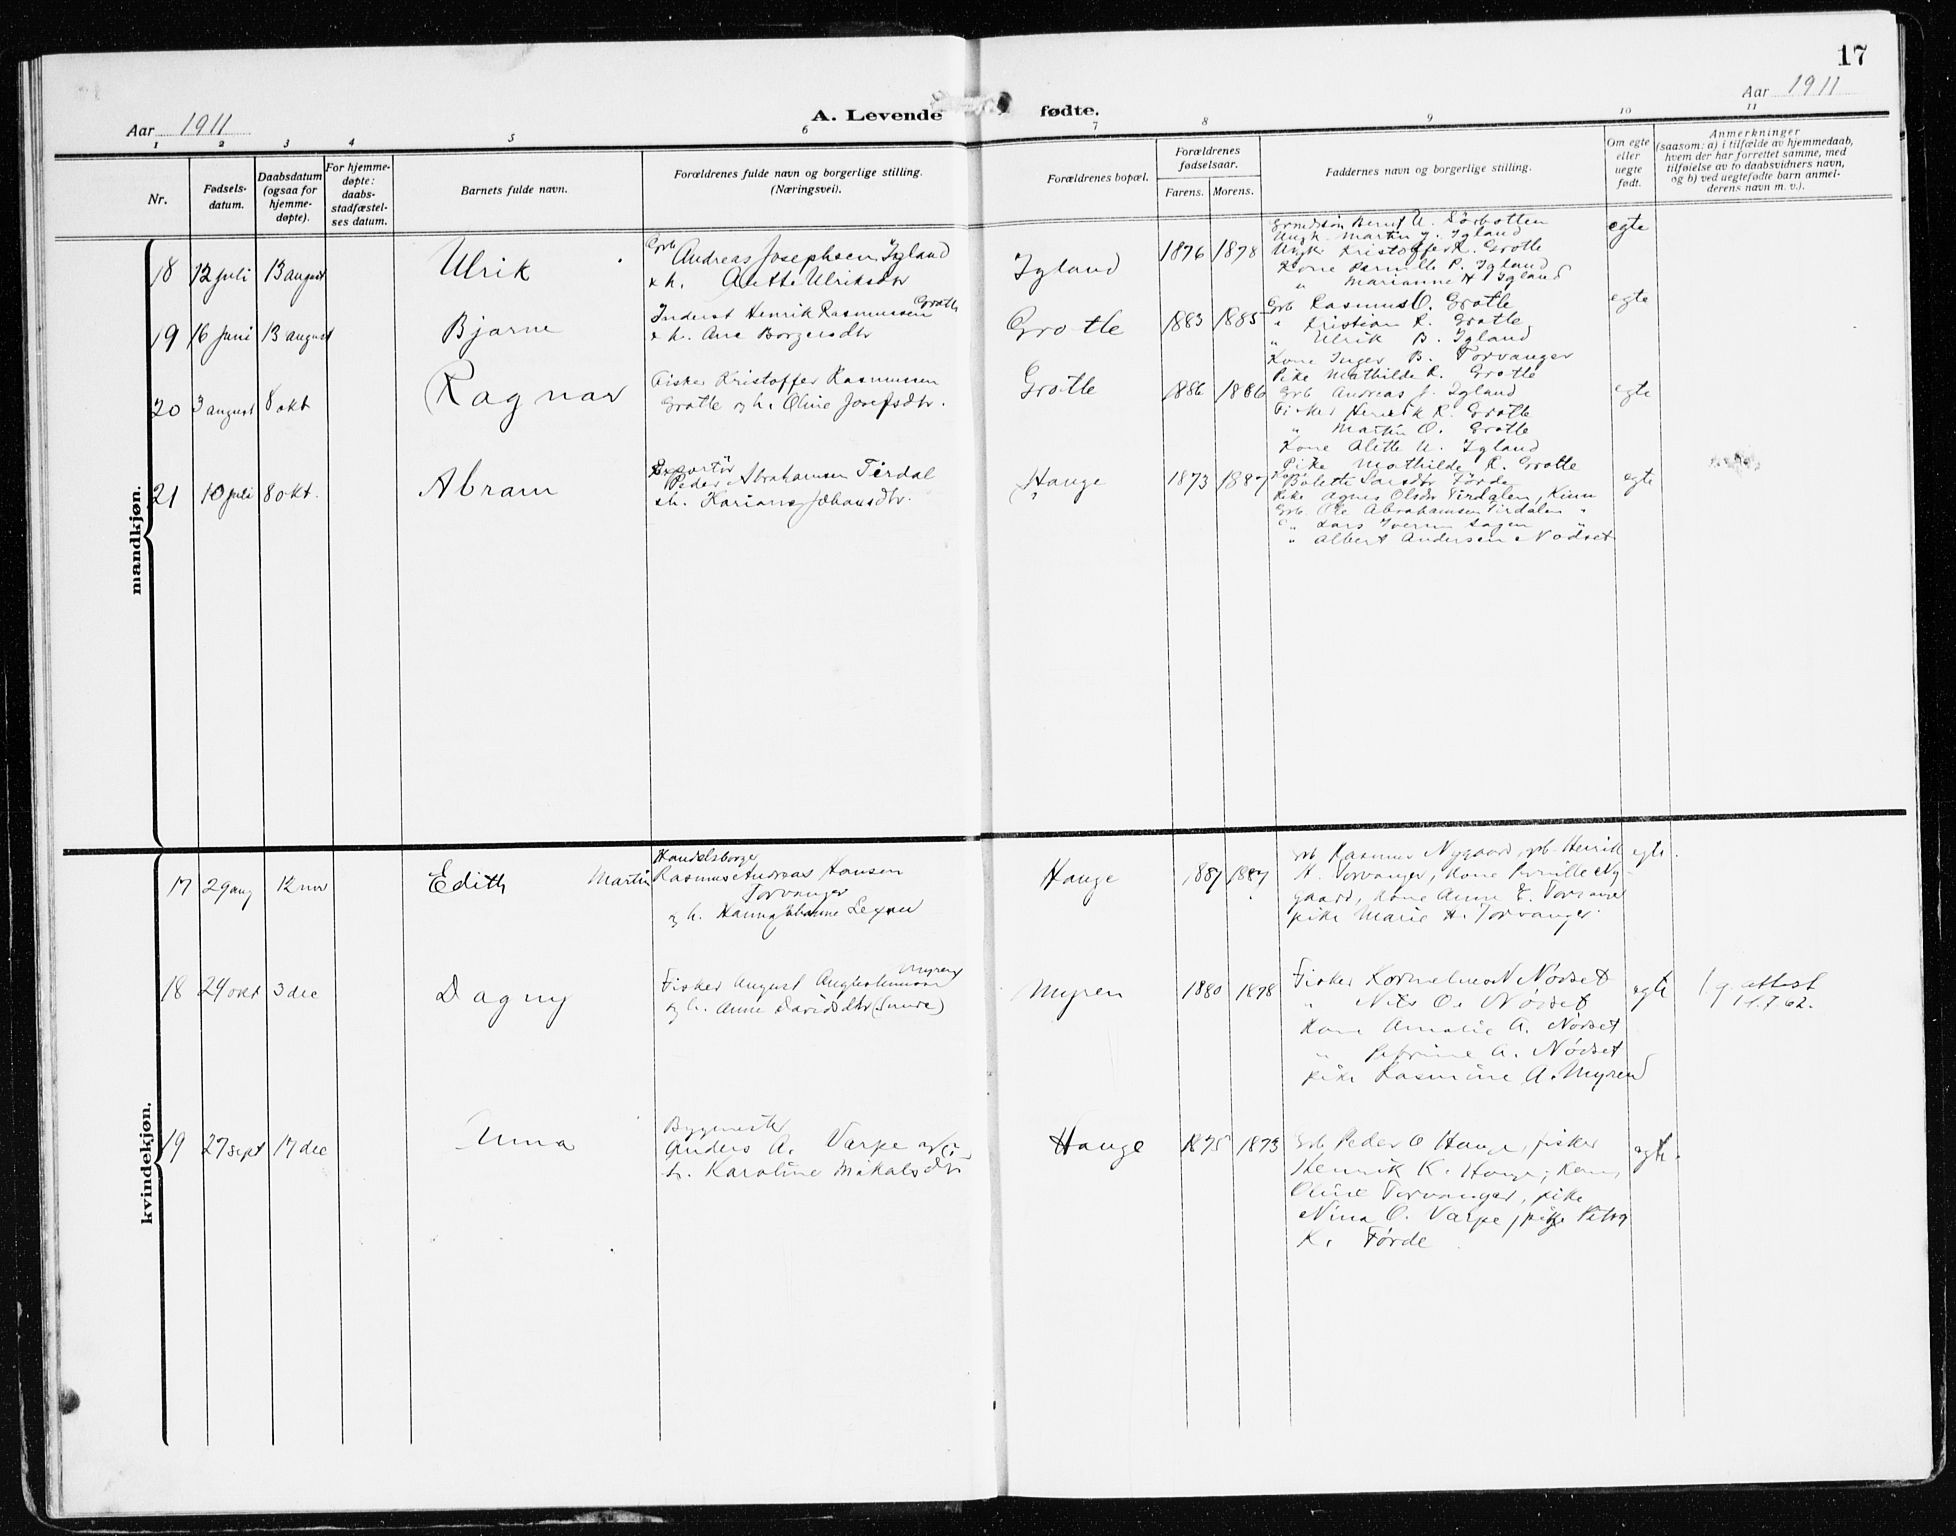 17
Aar 1911
A. Levende fødte.
Aar 1911
1 2 3 4 5 6 7 8 9 10 11
Nr.
Fødsels-
datum.
Daabsdatum
(ogsaa for
hjemme-
døpte).
For hjemme-
døpte:
daabs-
stadfæstel-
ses datum.
Barnets fulde navn.
Forældrenes fulde navn og borgerlige stilling.
(Næringsvei).
Forældrenes bopæl.
Forældrenes
fødselsaar.
Farens. Morens.
Faddernes navn og borgerlige stilling.
Om egte
eller
uegte
født.
Anmerkninger
(saasom: a) i tilfælde av hjemmedaab,
hvem der har forrettet samme, med
tilføielse av to daabsvidners navn,
og b) ved uegtefødte barn anmel-
derens navn m. v.).
mandkjøn.
18 12 juli 13 august Ulrik
Grb Andreas Josephsen Igland
& h. Alette Ulriksdtr
Igland 1876 1878
Bernt U. Sørbotten
Ungk. Martin J. Igland
Ungk. Kristoffer R. Grotle
Kone Pernille P. Igland
" Marianne H Igland
egte
19 16 juni 13 august Bjarne
Inderst Henrik Rasmussen Grotle
& h. Ane Borgersdtr
Grotle 1883 1885
Grb Rasmus O. Grotle
" Kristian R. Grotle
" Ulrik B. Igland
Kone Inger B. Torvanger
Pike Mathilde R. Grotle
egte
20 3 august 8 okt Ragnar
Fisker Kristoffer Rasmussen
Grotle og h. Oline Josefsdtr.
Grotle 1886 1886
Grb Andreas J. Igland
Fisker Henrik R. Grotle
" Martin O. Grotle
Kone Alette U. Igland
Pike Mathilde R. Grotle
egte
21 10 juli 8 okt. Abram
Exportør
Peder Abrahamsen Tirdal
& h. Kariane Johansdtr.
Hauge 1873 1887
Bolette Larsdtr Førde
Pike Agnes Olsdtr Tirdalen, Kinn
Grb. Ole Abrahamsen Tirdalen "
" Lars Iversen Hagen "
" Albert Andersen Nødset
egte
kvindekjøn.
17 29 aug 12 nov Edith
Handelsborger
Martin Rasmus Andreas Hansen
Torvanger
og h. Hanna Johanne Lexau
Hauge 1887 1887
Grb Rasmus Nygaard, grb Henrik
H. Torvanger, kone Pernille Ny-
gaard, kone Anne E. Torvanger
pike Marie H. Torvanger.
egte.
18 29 okt 3 dec Dagny
Fisker August Myren
og h. Anne Davidsdtr
Myren 1880 1878
Fisker Kornelius N Nødset
" Nils O. Nødset
Kone Amalie A. Nødset
" Petrine A. Nødset
pike Rasmine A. Myren
egte
1 g. attest
62.
19 27 sept 17 dec
Bygmester
Anders A. Varpe og
h. Karoline Mikalsdtr
Hauge 1875 1873
Grb Peder O Hauge, fisker
Henrik K. Hauge, kone
Oline Torvanger, pike
Nina O. Varpe, pike
K. Førde
egte.